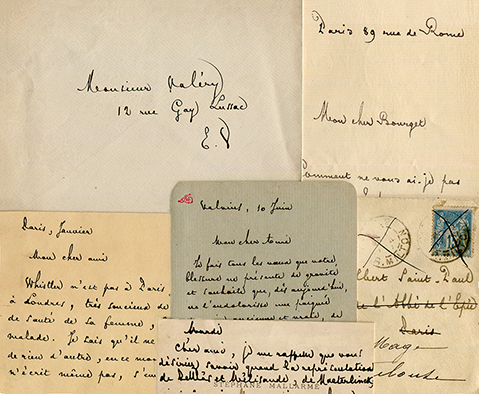 Monsieur Valéry
12 rue Gay Lussac
E. V
Paris 89 rue de Rome
Mon cher Bourget
Comment ne vous ai-je pas
Valvins, 10 Juin
Mon cher ami
Je fais tous les vœux que votre
blessure ne présente de gravité
et souhaite que, dès aujourd'hui,
Paris, Janvier
Mon cher ami
Whistler n'est pas à Paris
à Londres, très soucieux de
de santé de sa femme,
malade. Je sais qu'il ne
de rien d'autre, en ce mo
n'écrit même pas, s'em
Mardi
Cher ami, je me rappelle que vous
désiriez savoir quand la représentation
de Pelléas et Mélisande, de Maeterlinck
STÉPHANE MALLARMÉ
lbert Saint-Paul
de l'Abbé de l'Epée
Paris
Mage
louse